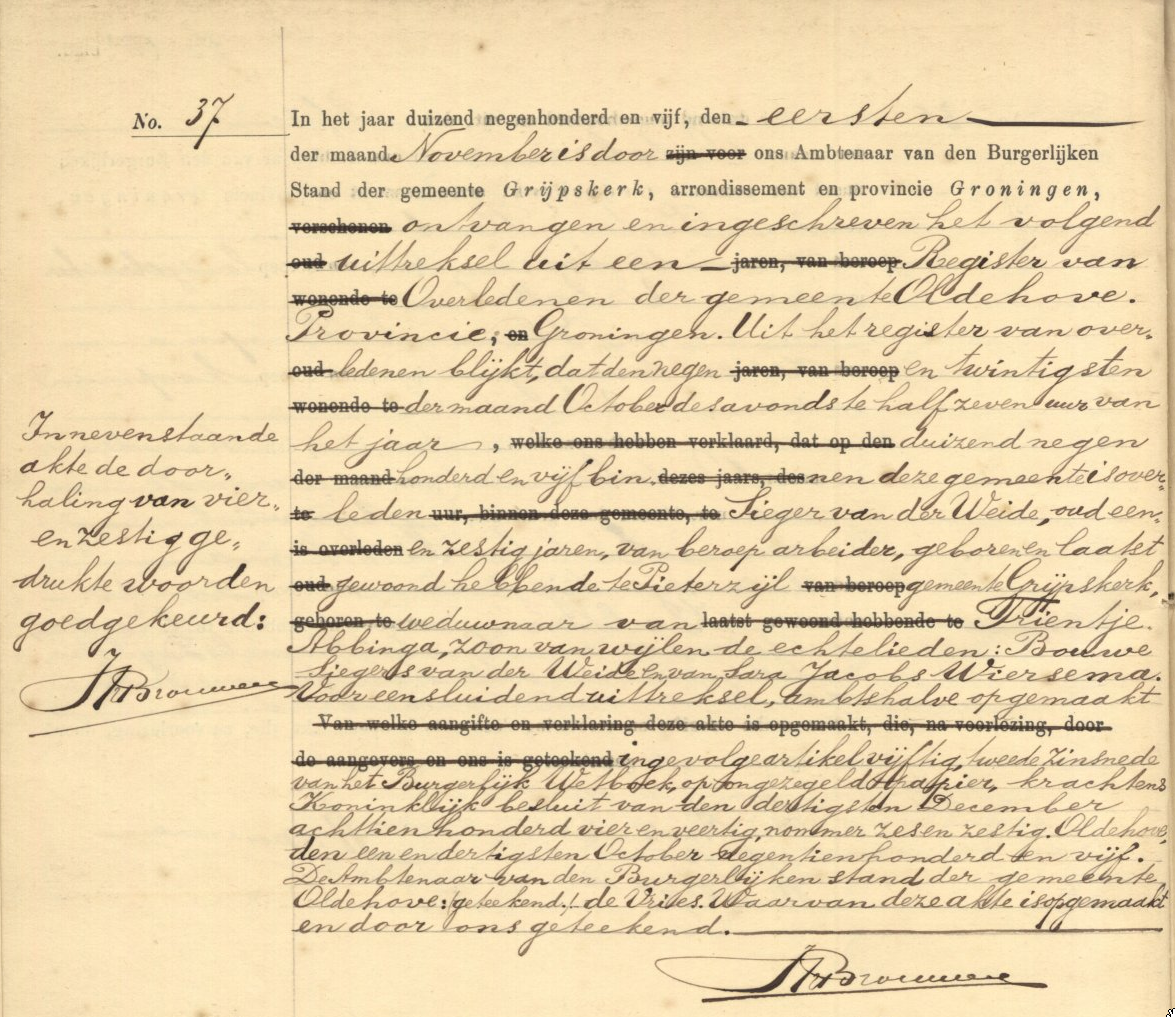 No. 37
In het jaar duizend negenhonderd en vijf, den eersten
der maand November is door zijn voor ons Ambtenaar van den Burgerlijken
Stand der gemeente Grijpskerk, arrondissement en provincie Groningen,
verschenen ontvangen en ingeschreven het volgend
oud uittreksel uit een jaren, van beroep Register van
wonende te Overledenen der gemeente Oldehove.
Provincie, en Groningen. Uit het register van over-
oud ledenen blijkt, dat den negen jaren, van beroep en twintigsten
wonende te der maand October des avonds te half zeven uur van
het jaar, welke ons hebben verklaard, dat op den duizend negen
der maand honderd en vijf bin dezes jaars, des nen deze gemeente is over-
te leden uur, binnen deze gemeente, te Sieger van der Weide, oud een-
is overleden en zestig jaren, van beroep arbeider, geboren en laatst
oud gewoond hebbende te Pieterzijl van beroep gemeente Grijpskerk,
geboren te weduwnaar van laatst gewoond hebbende te Trientje
Abbinga, zoon van wijlen de echtelieden: Bouwe
Siegers van der Weide en van Sara Jacobs Wiersema.
Voor eensluidend uittreksel, ambtshalve opgemaakt
Van welke aangifte en verklaring deze akte is opgemaakt, die, na voorlezing, door
de aangevers en ons is geteekend ingevolge artikel vijftig, tweede zinsnede
van het Burgerlijk Wetboek, op ongezegeld papier, krachtens
Koninklijk besluit van den dertigsten December
achttienhonderd vier en veertig, nommer zes en zestig. Oldehove,
den een en dertigsten October negentienhonderd en vijf.
De Ambtenaar van den Burgerlijken stand der gemeente
Oldehove: (geteekend) de Vries. Waarvan deze akte is opgemaakt
en door ons geteekend.
Brouwer
In nevenstaande
akte de door-
haling van vier-
en zestig ge-
drukte woorden
goedgekeurd:
Brouwer